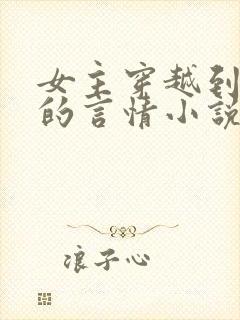 女主穿越到
的言情小说
浪子心